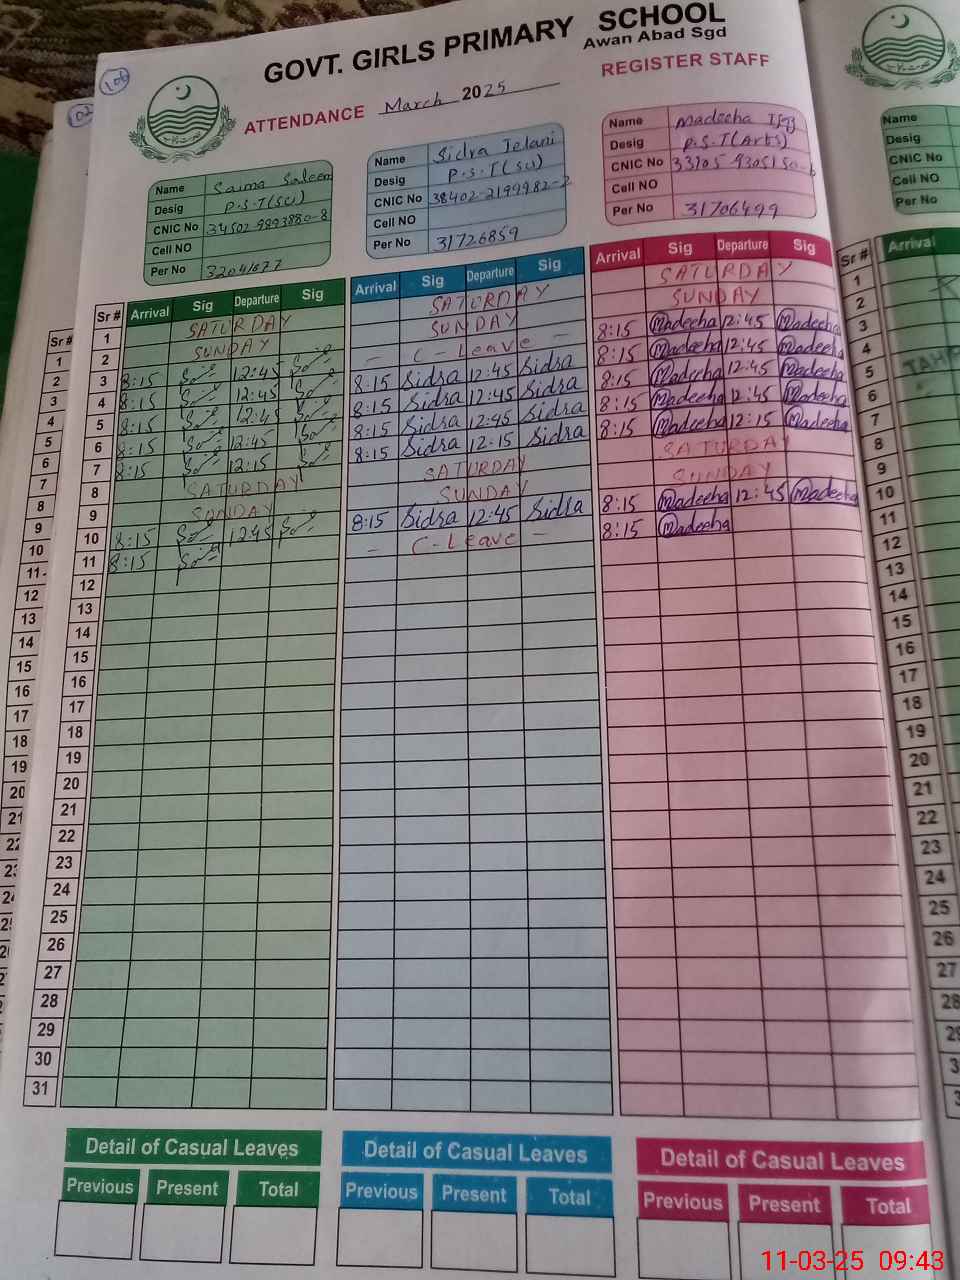 GOVT. GIRLS PRIMARY SCHOOL
Awan Abad Sgd
106
ATTENDANCE March 2025
REGISTER STAFF
Name Saima Saleem
Desig P.S.T(SCI)
CNIC No 34502-9993880-8
Cell NO
Per No 32041077
Name Sidra Jelani
Desig P.S.T(SCI)
CNIC No 38402-2199982-2
Cell NO
Per No 31726859
Name Madeeha
Desig P.S.T(Arts)
CNIC No
Cell NO
Per No 31706499
Sr # Arrival Sig Departure Sig Arrival Sig Departure Sig Arrival Sig Departure Sig
1 SATURDAY SATURDAY SATURDAY
2 SUNDAY SUNDAY SUNDAY
3 8:15 12:45 - C-Leave - 8:15 Madeeha 12:45 Madeeha
4 8:15 12:45 8:15 Sidra 12:45 Sidra 8:15 Madeeha 12:45 Madeeha
5 8:15 12:45 8:15 Sidra 12:45 Sidra 8:15 Madeeha 12:45 Madeeha
6 8:15 12:45 8:15 Sidra 12:45 Sidra 8:15 Madeeha 12:45 Madeeha
7 8:15 12:15 8:15 Sidra 12:15 Sidra 8:15 Madeeha 12:15 Madeeha
8 SATURDAY SATURDAY SATURDAY
9 SUNDAY SUNDAY SUNDAY
10 8:15 12:45 8:15 Sidra 12:45 Sidra 8:15 Madeeha 12:45 Madeeha
11 8:15 - C-Leave - 8:15 Madeeha
12
13
14
15
16
17
18
19
20
21
22
23
24
25
26
27
28
29
30
31
Detail of Casual Leaves
Previous Present Total
Detail of Casual Leaves
Previous Present Total
Detail of Casual Leaves
Previous Present Total
Name
Desig
CNIC No
Cell NO
Per No
Sr # Arrival
1
2
3
4
5
6
7
8
9
10
11
12
13
14
15
16
17
18
19
20
21
22
23
24
25
26
27
28
11-03-25 09:43